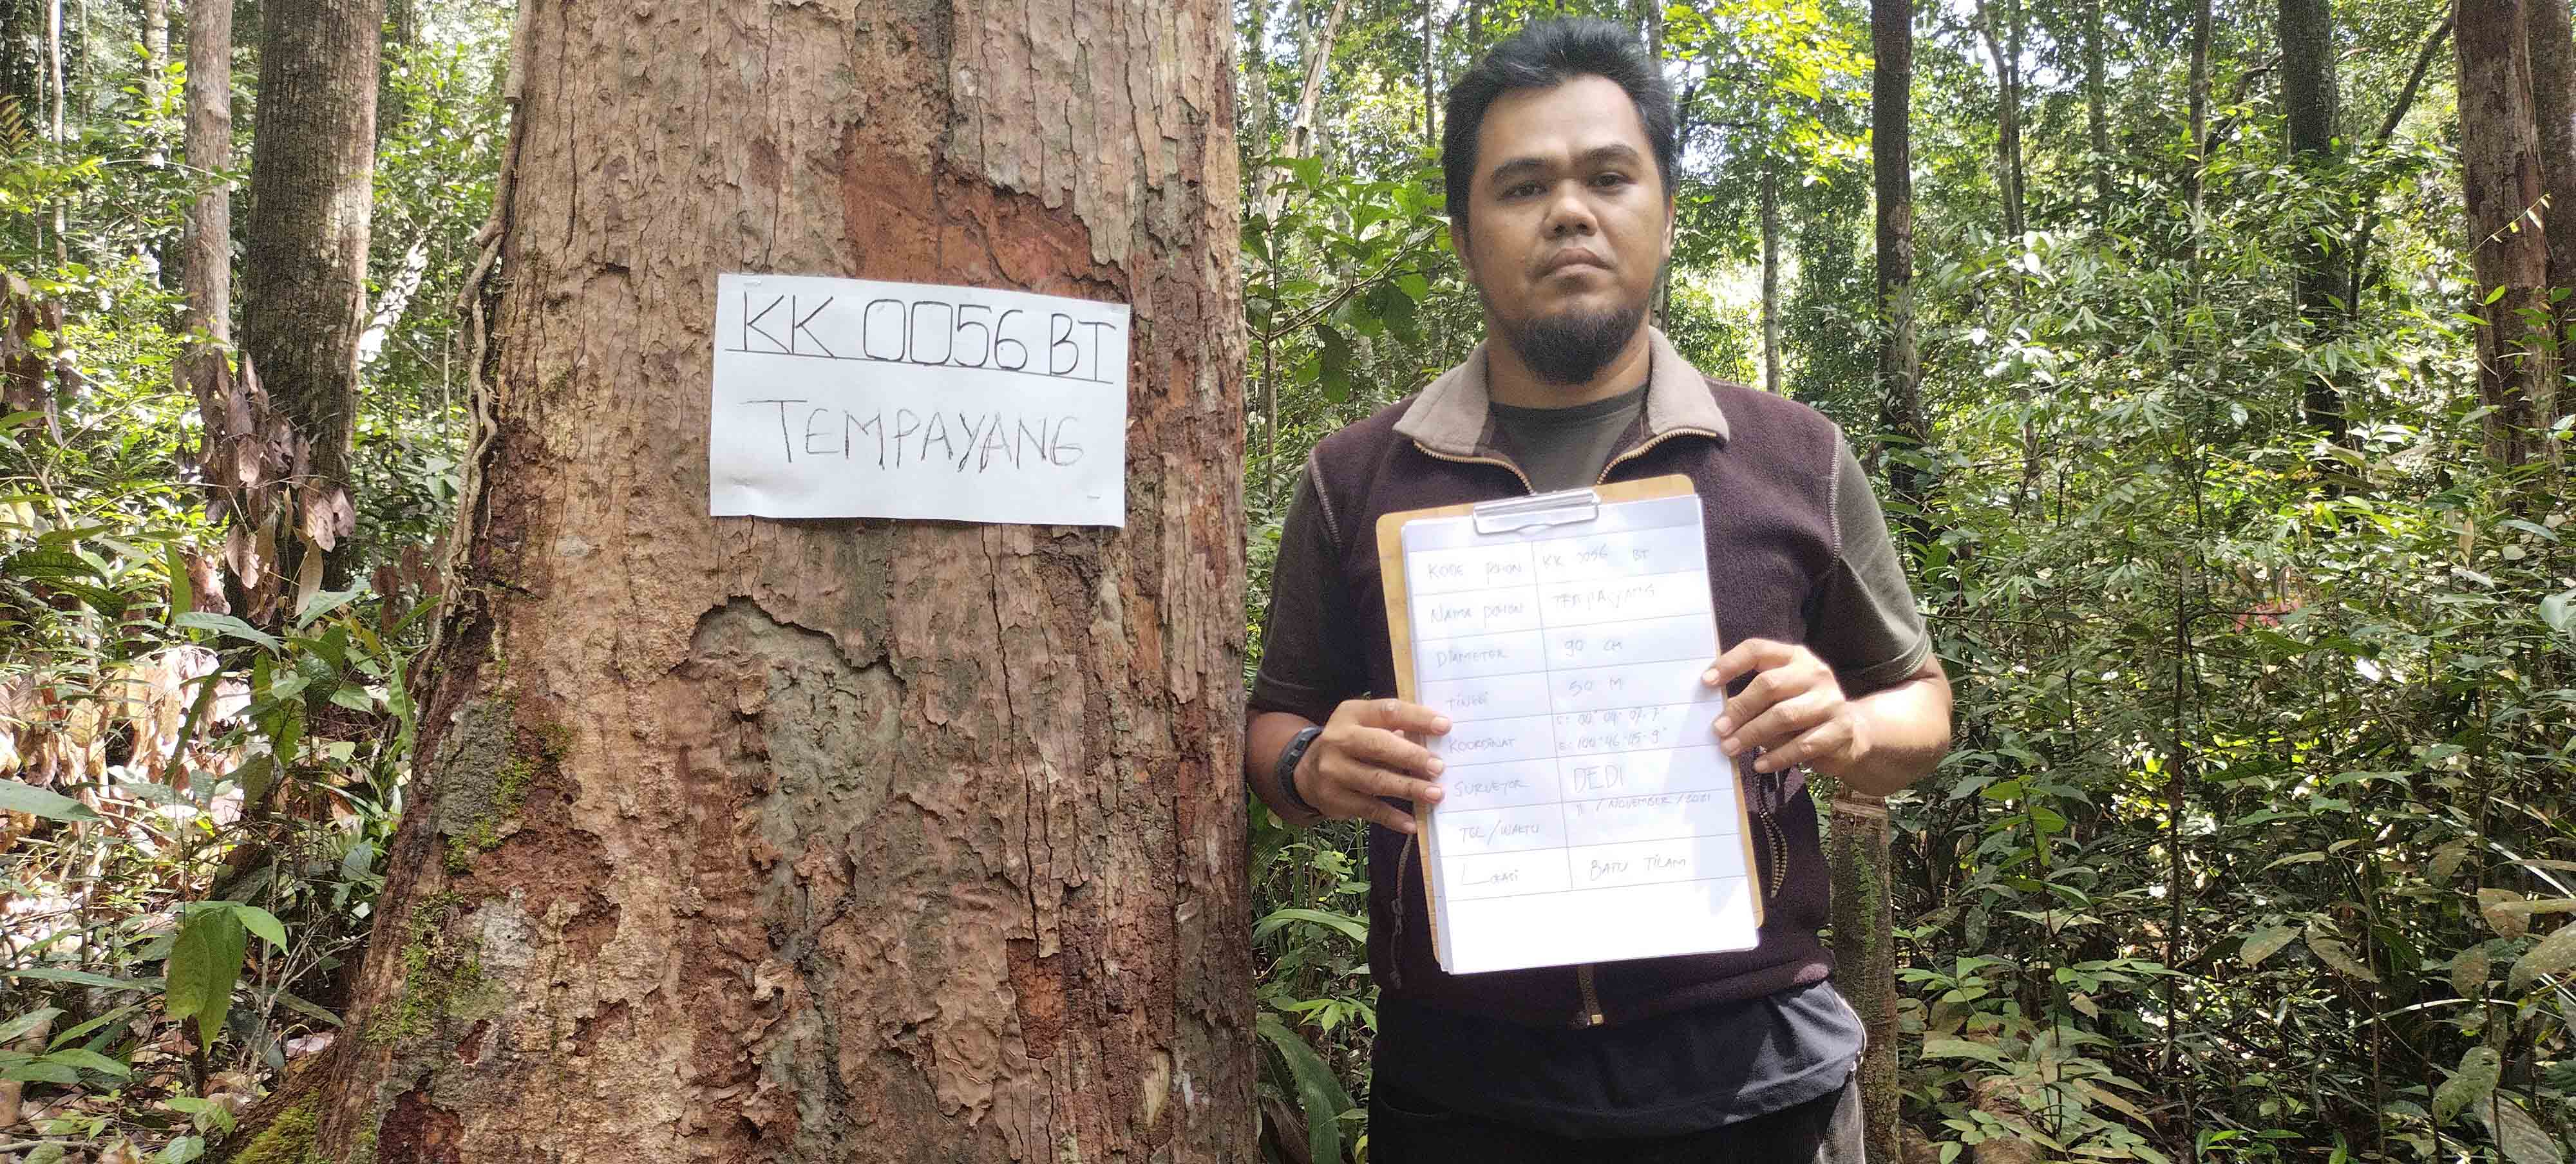 KK 0056 BT
TEMPAYANG
KODE POHON KK 0056 BT
NAMA POHON TEMPAYANG
DIAMETER 90 CM
TINGGI 50 M
KOORDINAT
SURVEYOR DEDI
TGL/WAKTU 11/NOVEMBER/2021
LOKASI BATU TILAM